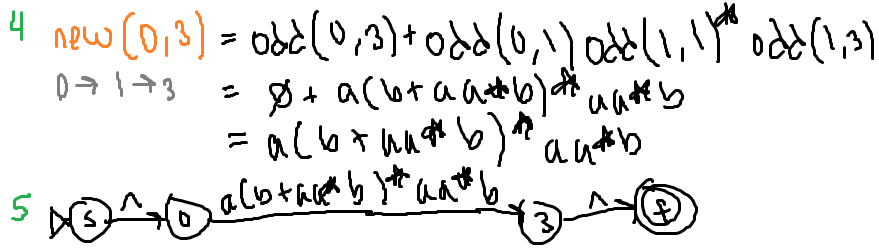 4 new(0,3) = odd(0,3) + odd(0,1) odd(1,1)* odd(1,3)
0→1→3 = ø + a(b+aa*b)* aa*b
= a(b+aa*b)* aa*b
5 s Λ 0 a(b+aa*b)* aa*b 3 Λ f